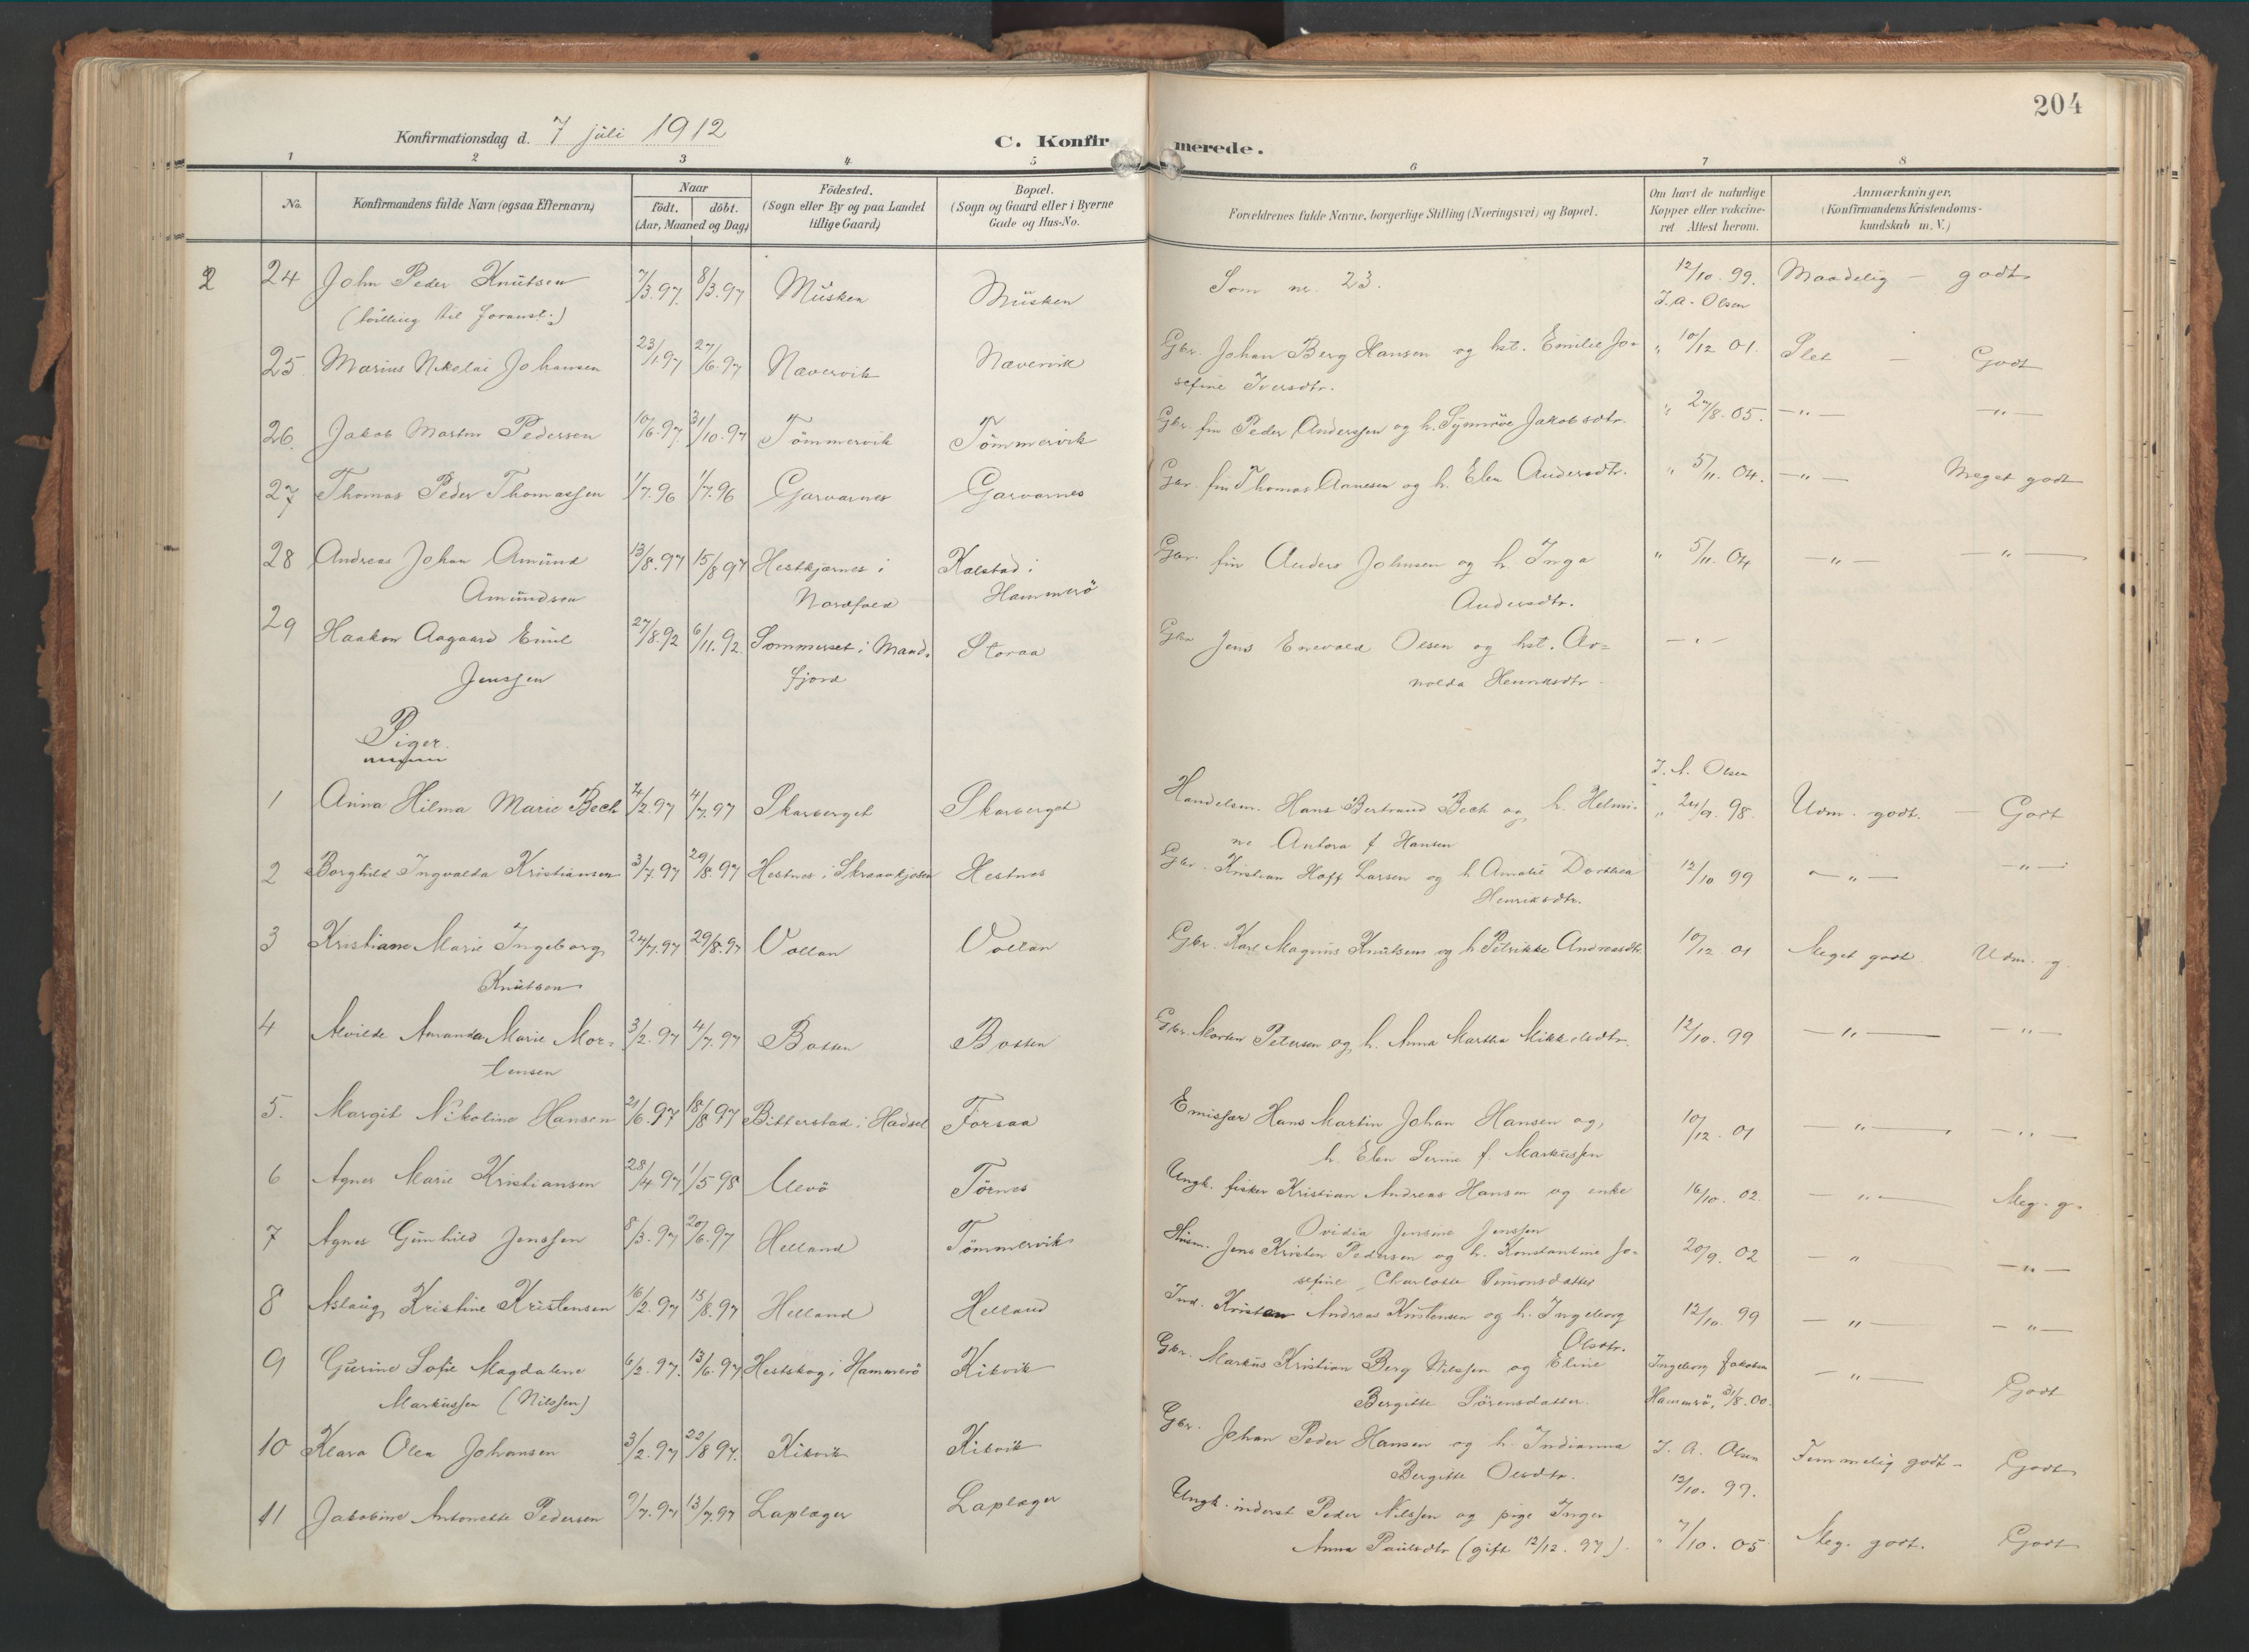 204
Konfirmationsdag d. 7 juli 1912
C. Konfirmerede.
1 2 3 4 5 6 7 8
No.
Konfirmandens fulde Navn (ogsaa Efternavn)
Naar
født. døbt.
(Aar, Maaned og Dag)
Födested.
(Sogn eller By og paa Landet
tillige Gaard)
Bopæl.
(Sogn og Gaard eller i Byerne
Gade og Hus-No.
Forældrenes fulde Navne, borgerlige Stilling (Næringsvei) og Bopæl.
Om havt de naturlige
Kopper eller vakcine-
ret. Attest herom.
Anmærkninger.
(Konfirmandens Kristendoms-
kundskab m. V.)
2 24 John Peder Knutsen 7/3.97 8/3.97 Musken Musken Som nr. 23. 12/10.99. Maadelig - godt
(tvilling til foranst.) J.A. Olsen
25 Marius Nikolai Johansen 23/1 97 27/6.97 Nævervik Nævervik Gbr. Johan Berg Hansen og hst. Emilie Jo- " 10/12 01. Slet - Godt
sefine Iversdtr.
26. Jakob Martin Pedersen 10/6.97. 31/10.97 Tömmervik Tömmervik Gbr. fin Peder Anderssen og h. Synnöve Jakobsdtr. " 27/8.05. -"- -"-
27 Thomas Peder Thomassen 1/7.96 1/7.96 Garvarnes Garvarnes Gbr. fin Thomas Aanesen og h. Elen Andersdtr. " 5/11.04. -"- Meget godt
28 Andreas Johan Amund 13/8.97 15/8 97 Hestkjærnes i Kalstad i Gbr. fin Anders Johnsen og h. Inga " 5/11.04 -"- -"-
Amundsen Nordfold Hammerö Andersdtr.
29 Haakon Aagaard Emil 27/8.92 6/11.92 Sommerset i Mand- Storaa Gbr Jens Enevold Olsen og hst. Ar- -"-
Jenssen fjord nolda Henriksdtr.
Piger.
J. A. Olsen
1 Anna Hilma Marie Bech 4/2.97 4/7.97 Skarberget Skarberget Handelsm. Hans Bertrand Bech og h. Helmi- " 24/9.98. Udm. godt. - Godt
ne Antora f Hansen
2 Borghild Ingvalda Kristiansen 3/7.97 29/8.97 Hestnes i Hestnes Gbr. Kristian Hoff Larsen og h Amalie Dorthea 12/10 99 -"- -"-
Henriksdtr.
3 Kristiane Marie Ingeborg 24/7.97 29/8.97 Vollan Vollan Gbr. Karl Magnus Knutsen og h Petrikke Andreasdtr. 10/12 01 Meget godt. Udm. g.
Knutsen
4 Alvilde Amanda Marie Mor- 3/2.97 4/7.97 Botten Botten Gbr. Morten Petersen og h. Anna Martha Mikkelsdtr. 12/10.99 -"- -"-
tensen
5. Margit Nikoline Hansen 21/6.97 18/8 97 Bitterstad i Hadsel Forsaa Emissær Hans Martin Johan Hansen og 10/12.01 -"- -"-
h. Elen Serine f. Markussen
6 Agnes Marie Kristiansen 28/4 97 1/5 98 Ulvö Törnes Ungk. fisker Kristian Andreas Hansen og enke 16/10.02. -"- Meg. g.
Ovidia Jensine Jenssen
7 Agnes Gunhild Jenssen 8/3.97 20/6.97 Helland Tömmervik Husm. Jens Kristen Pedersen og h. Konstantine Jo- 20/9.02 -" -"-
sefine Charlotte Simonsdatter
8 Aslaug Kristine Kristensen 16/2.97 15/8.97 Helland Helland Ind. Kristen Andreas Kristensen og h. Ingeborg 12/10.99 -"- -"-
Olsdtr.
9 Gurine Sofie Magdalene 6/2.97. 13/6.97 Hestskog i Hammerö Kikvik Gbr. Markus Kristian Berg Nilssen og Eline Ingeborg Jakobsen -"- Godt
Markussen (Nilssen) Bergitte Sörensdatter. Hammerö, 31/8.00.
10 Klara Olea Johansen 3/2.97 22/8 97. Kikvik Kikvik Gbr. Johan Peder Hansen og h. Indianna J. A. Olsen Temmelig godt - Godt
Bergitte Olsdtr. 12/10.99.
11 Jakobine Antonette Pedersen 9/7.97 13/7.97 Laplæger Laplæger Ungk. inderst Peder Nilssen og pige Inger
Anna Paulsdtr (gift 12/12.97). " 7/10.05 Meg. godt. Godt